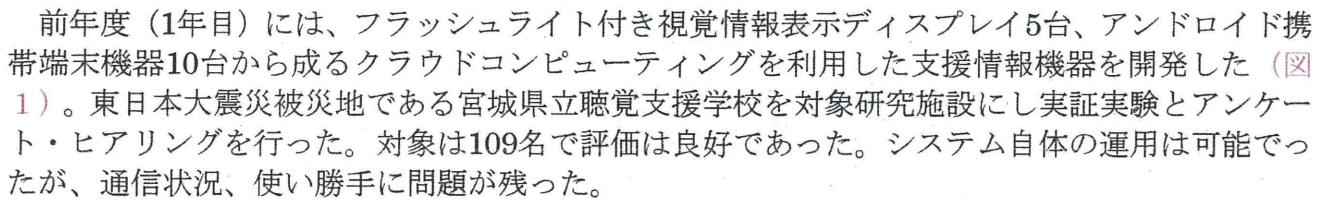 前年度（1年目）には、フラッシュライト付き視覚情報表示ディスプレイ5台、アンドロイド携
帯端末機器10台から成るクラウドコンピューティングを利用した支援情報機器を開発した（図
1）。東日本大震災被災地である宮城県立聴覚支援学校を対象研究施設にし実証実験とアンケー
ト・ヒアリングを行った。対象は109名で評価は良好であった。システム自体の運用は可能でっ
たが、通信状況、使い勝手に問題が残った。